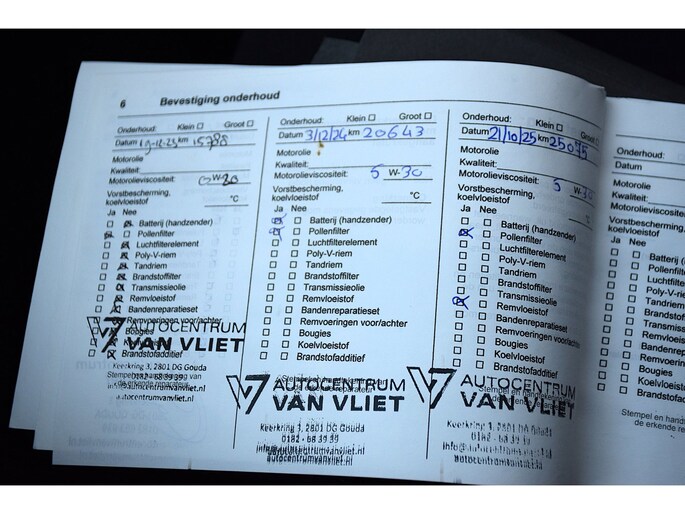 6 Bevestiging onderhoud
Onderhoud: Klein ☐ Groot ☐
Datum km 15788
Motorolie
Kwaliteit:
Motorolieviscositeit: 0 W-20
Vorstbescherming,
koelvloeistof °C
Ja Nee
Batterij (handzender)
Pollenfilter
Luchtfilterelement
Poly-V-riem
Tandriem
Brandstoffilter
Transmissieolie
Remvloeistof
Bandenreparatieset
Remvoeringen voor/achter
Bougies
Brandstofadditief
AUTOCENTRUM
VAN VLIET
Keerkring 3, 2801 DG Gouda
0182 - 68 39 39
de erkende reparateur
autocentrumvanvliet.nl
Onderhoud: Klein ☐ Groot ☐
Datum 3/12/24 km 20643
Motorolie
Kwaliteit:
Motorolieviscositeit: 5 W-30
Vorstbescherming,
koelvloeistof °C
Ja Nee
Batterij (handzender)
Pollenfilter
Luchtfilterelement
Poly-V-riem
Tandriem
Brandstoffilter
Transmissieolie
Remvloeistof
Bandenreparatieset
Remvoeringen voor/achter
Bougies
Koelvloeistof
Brandstofadditief
AUTOCENTRUM
VAN VLIET
Keerkring 3, 2801 DG Gouda
0182 - 68 39 39
autocentrumvanvliet.nl
Onderhoud: Klein ☐ Groot ☐
Datum 21/10/25 km 25075
Motorolie
Kwaliteit:
Motorolieviscositeit: 5 W-30
Vorstbescherming,
koelvloeistof °C
Ja Nee
Batterij (handzender)
Pollenfilter
Luchtfilterelement
Poly-V-riem
Tandriem
Brandstoffilter
Transmissieolie
Remvloeistof
Bandenreparatieset
Remvoeringen voor/achter
Bougies
Koelvloeistof
Brandstofadditief
AUTOCENTRUM
VAN VLIET
Keerkring 3, 2801 DG Gouda
0182 - 68 39 39
autocentrumvanvliet.nl
Onderhoud:
Datum
Motorolie
Kwaliteit:
Motorolieviscositeit
Vorstbescherming
koelvloeistof
Ja Nee
Batterij
Pollenfilter
Luchtfilterel
Poly-V-riem
Tandriem
Brandstoffilter
Transmissieolie
Remvloeistof
Bandenreparatie
Remvoeringen
Bougies
Koelvloeistof
Brandstofadditief
Stempel en
de erkende repara